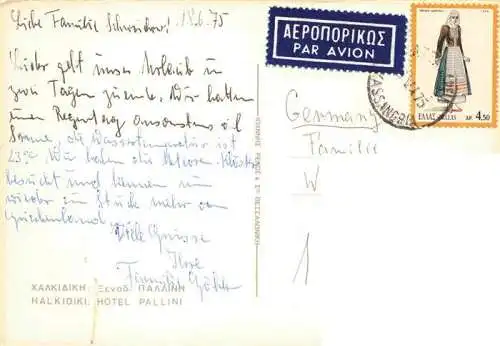 Liebe Familie Schwarzkopf! 18.6.75
Leider geht unser Urlaub in
zwei Tagen zuende. Wir hatten
einen Regentag ansonsten viel
Sonne, die Wassertemperatur ist
23°C. Wir haben die Meteora-Klöster
besucht und kennen nun
wieder ein Stück mehr von
Griechenland.
Viele Grüsse
Ihre
Familie
ΧΑΛΚΙΔΙΚΗ: Ξενοδ. ΠΑΛΛΙΝΗ
HALKIDIKI: HOTEL PALLINI
ΑΕΡΟΠΟΡΙΚΩΣ
PAR AVION
ΕΛΛΑΣ HELLAS ΔΡ. 4.50
Germany
Familie
W
1